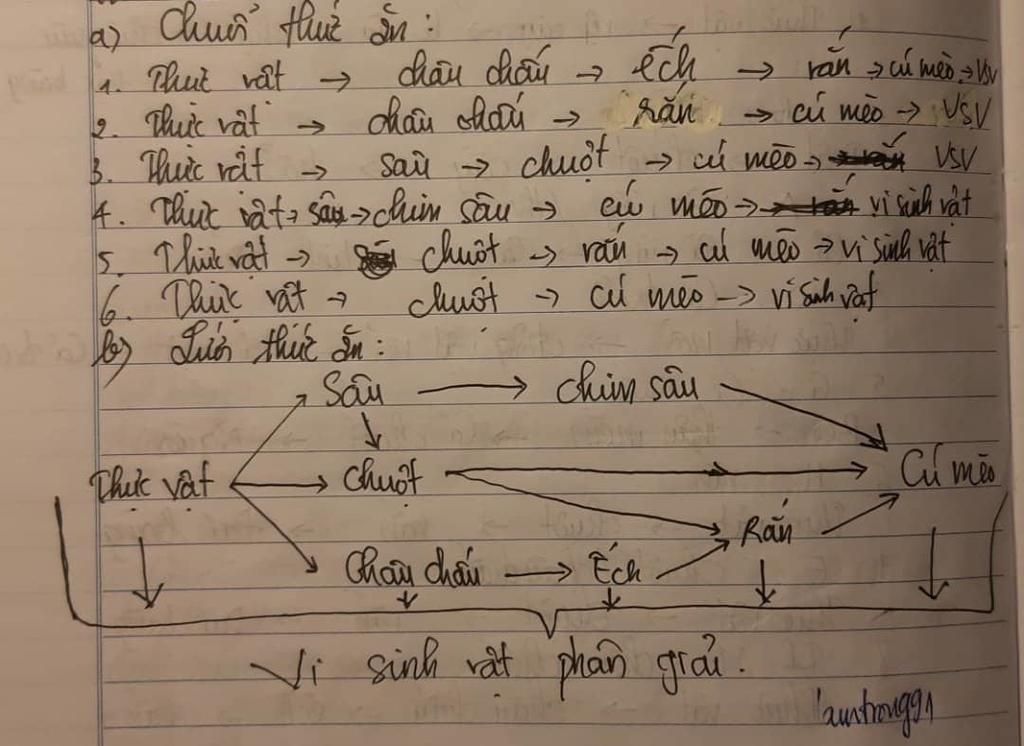 a) Chuỗi thức ăn :
1. Thực vật → châu chấu → ếch → rắn → cú mèo → VSV
2. Thực vật → châu chấu → rắn → cú mèo → VSV
3. Thực vật → sâu → chuột → cú mèo → VSV
4. Thực vật → sâu → chim sâu → cú mèo → vi sinh vật
5. Thực vật → chuột → rắn → cú mèo → vi sinh vật
6. Thực vật → chuột → cú mèo → vi sinh vật
b) Lưới thức ăn :
Sâu → chim sâu
Thực vật → chuột → Cú mèo
Rắn
Châu chấu → Ếch
Vi sinh vật phân giải .
lamtrong91